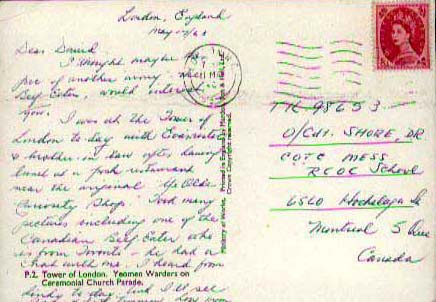 London, England
Dear David
I thought maybe the
pic of another army - the
Beef Eaters, would interest
you.
I was at the Tower of
London to-day with
& brother-in-law after having
lunch at a posh restaurant
near the original "Ye Olde
Curiosity Shop". Took many
pictures including one of the
Canadian Beef Eater who
is from Toronto - he had a
chat with me. I heard from
to-day and I'll see
P.2. Tower of London. Yeomen Warders on
Ceremonial Church Parade.
Ministry of Works. Printed in England by
Crown Copyright reserved.
TK 98653
O/Cdt. SHORE, DR
COTC MESS
RCOC School
6560 Hochelaga St
Montreal 5 Que
Canada